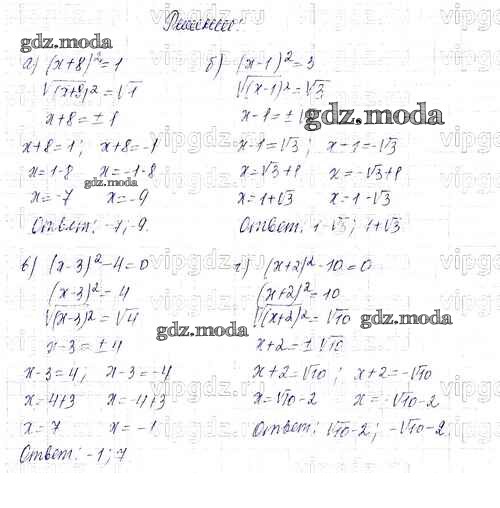 Решение:
а) (x+8)² = 1
√(x+8)² = √1
x+8 = ±1
x+8=1; x+8=-1
x=1-8 x=-1-8
x=-7 x=-9
Ответ: -7; -9.
б) (x-1)² = 3
√(x-1)² = √3
x-1=±
x-1=√3; x-1=-√3
x=√3+1 x=-√3+1
x=1+√3 x=1-√3
Ответ: 1-√3; 1+√3
в) (x-3)²-4=0
(x-3)² = 4
√(x-3)² = √4
x-3=±4
x-3=4; x-3=-4
x=4+3 x=-4+3
x=7 x=-1
Ответ: -1; 7
г) (x+2)²-10=0
(x+2)²=10
√(x+2)² = √10
x+2=±√10
x+2=√10; x+2=-√10
x=√10-2 x=-√10-2
Ответ: √10-2; -√10-2.
gdz.moda
gdz.moda
gdz.moda
gdz.moda
gdz.moda